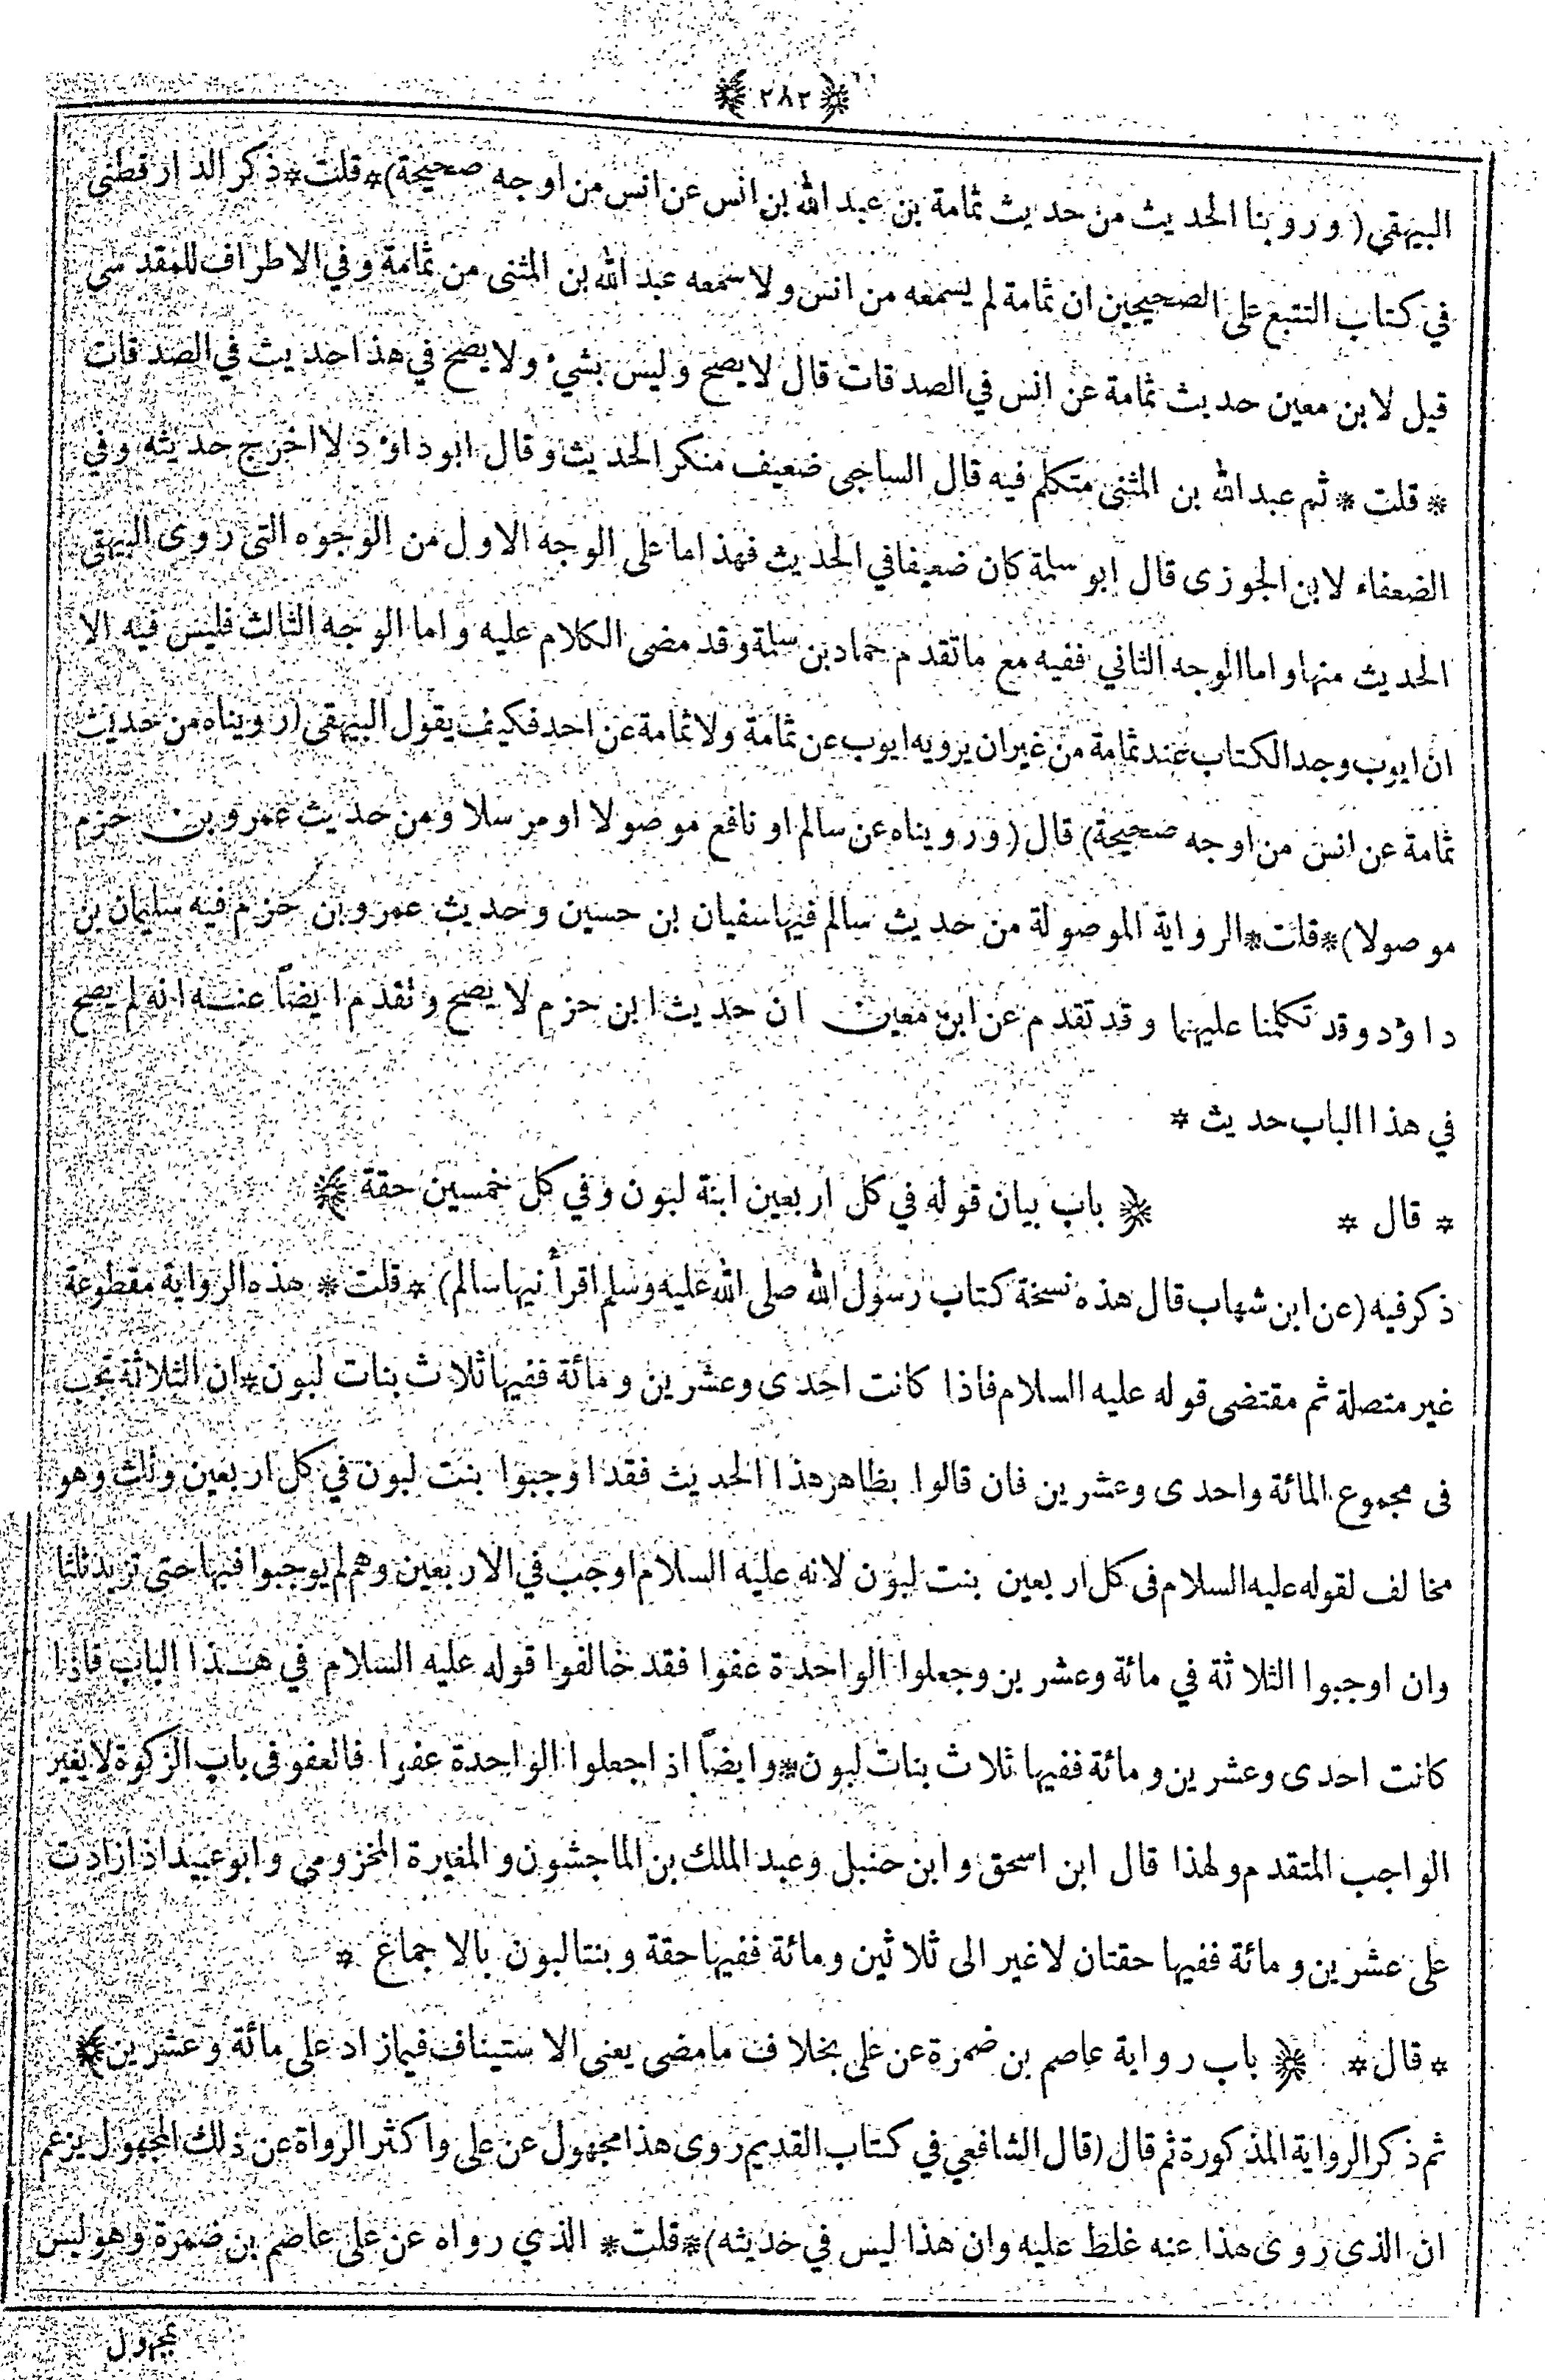 ﴿ ٢٨٢ ﴾
البيهقي (وروينا الحديث من حديث ثمامة بن عبد الله بن انس عن انس من اوجه صحيحة) * قلت * ذكر الدارقطني
في كتاب التتبع على الصحيحين ان ثمامة لم يسمعه من انس ولا سمعه عبد الله بن المثنى من ثمامة وفي الاطراف للمقدسى
قيل لابن معين حديث ثمامة عن انس في الصدقات قال لا يصح وليس بشيء ولا يصح في هذا حديث في الصدقات
* قلت * ثم عبد الله بن المثنى متكلم فيه قال الساجى ضعيف منكر الحديث وقال ابو داؤد لا اخرج حديثه وفي
الضعفاء لابن الجوزى قال ابو سلمة كان ضعيفا في الحديث فهذا ما على الوجه الاول من الوجوه التى روى البيهقى
الحديث منها واما الوجه الثاني ففيه مع ما تقدم حماد بن سلمة وقد مضى الكلام عليه واما الوجه الثالث فليس فيه الا
ان ايوب وجد الكتاب عند ثمامة من غير ان يرويه ايوب عن ثمامة ولا ثمامة عن احد فكيف يقول البيهقى (رويناه من حديث
ثمامة عن انس من اوجه صحيحة) قال (ورويناه عن سالم او نافع موصولا او مرسلا ومن حديث عمرو بن حزم
موصولا) * قلت * الرواية الموصولة من حديث سالم فيها سفيان بن حسين وحديث عمرو بن حزم فيه سليمان بن
داؤد وقد تكلمنا عليهما وقد تقدم عن ابن معين ان حديث ابن حزم لا يصح وتقدم ايضاً عنه انه لم يصح
في هذا الباب حديث *
* قال * ﴿ باب بيان قوله في كل اربعين ابنة لبون وفي كل خمسين حقة ﴾
ذكر فيه (عن ابن شهاب قال هذه نسخة كتاب رسول الله صلى الله عليه وسلم اقرأنيها سالم) * قلت * هذه الرواية مقطوعة
غير متصلة ثم مقتضى قوله عليه السلام فاذا كانت احدى وعشرين ومائة ففيها ثلاث بنات لبون * ان الثلاثة تجب
فى مجموع المائة واحدى وعشرين فان قالوا بظاهر هذا الحديث فقد اوجبوا بنت لبون في كل اربعين وثلث وهو
مخالف لقوله عليه السلام فى كل اربعين بنت لبون لانه عليه السلام اوجب في الاربعين وهم لم يوجبوا فيها حتى تزيد ثلثا
وان اوجبوا الثلاثة في مائة وعشرين وجعلوا الواحدة عفوا فقد خالفوا قوله عليه السلام في هذا الباب فاذا
كانت احدى وعشرين ومائة ففيها ثلاث بنات لبون * وايضاً اذا جعلوا الواحدة عفوا فالعفو فى باب الزكوة لا يغير
الواجب المتقدم ولهذا قال ابن اسحق وابن حنبل وعبد الملك بن الماجشون والمغيرة المخزومي وابو عبيد اذا زادت
على عشرين ومائة ففيها حقتان لا غير الى ثلاثين ومائة ففيها حقة وبنتا لبون بالاجماع *
* قال * ﴿ باب رواية عاصم بن ضمرة عن على بخلاف ما مضى يعنى الاستيناف فيما زاد على مائة وعشرين ﴾
ثم ذكر الرواية المذكورة ثم قال (قال الشافعي في كتاب القديم روى هذا مجهول عن على واكثر الرواة عن ذلك المجهول يزعم
ان الذى روى هذا عنه غلط عليه وان هذا ليس في حديثه) * قلت * الذي رواه عن على عاصم بن ضمرة وهو ليس
بمجهول